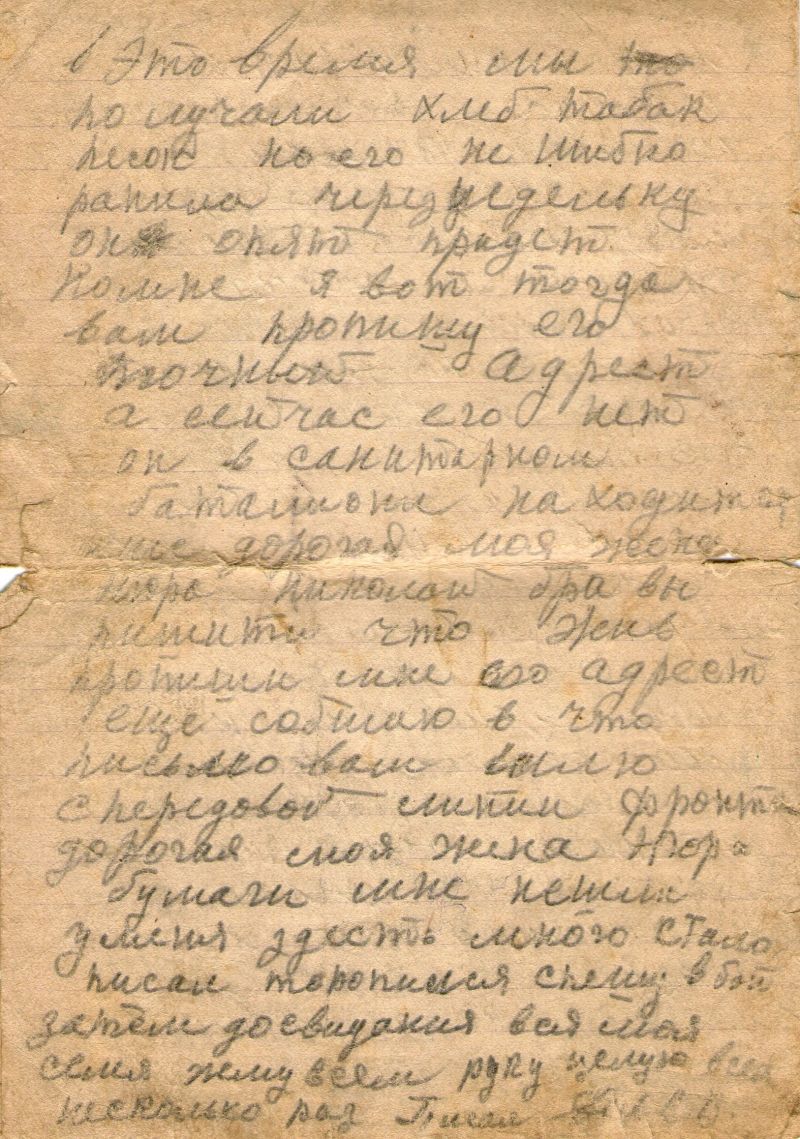 в Это время мы то
получали хлеб табак
песок но его не шибко
ранила через недельку
он опят придет
Комне я вот тогда
вам пропишу его
точный Адрест
а сейчас его нет
он в санитарном
баталиони находитса
дорогая моя жена
нюра николай бра вы
пишити что Жив
пропиши мне его адрест
еще сабшаю в что
письмо вам шлю
с передовой линии фронта
дорогая моя жена Нюра
бумаги мне нешли
уменя здесть много стало
писал торопился спешу в бой
затем досвидания вся моя
семя жму всем руку целую всех
несколько раз Писал